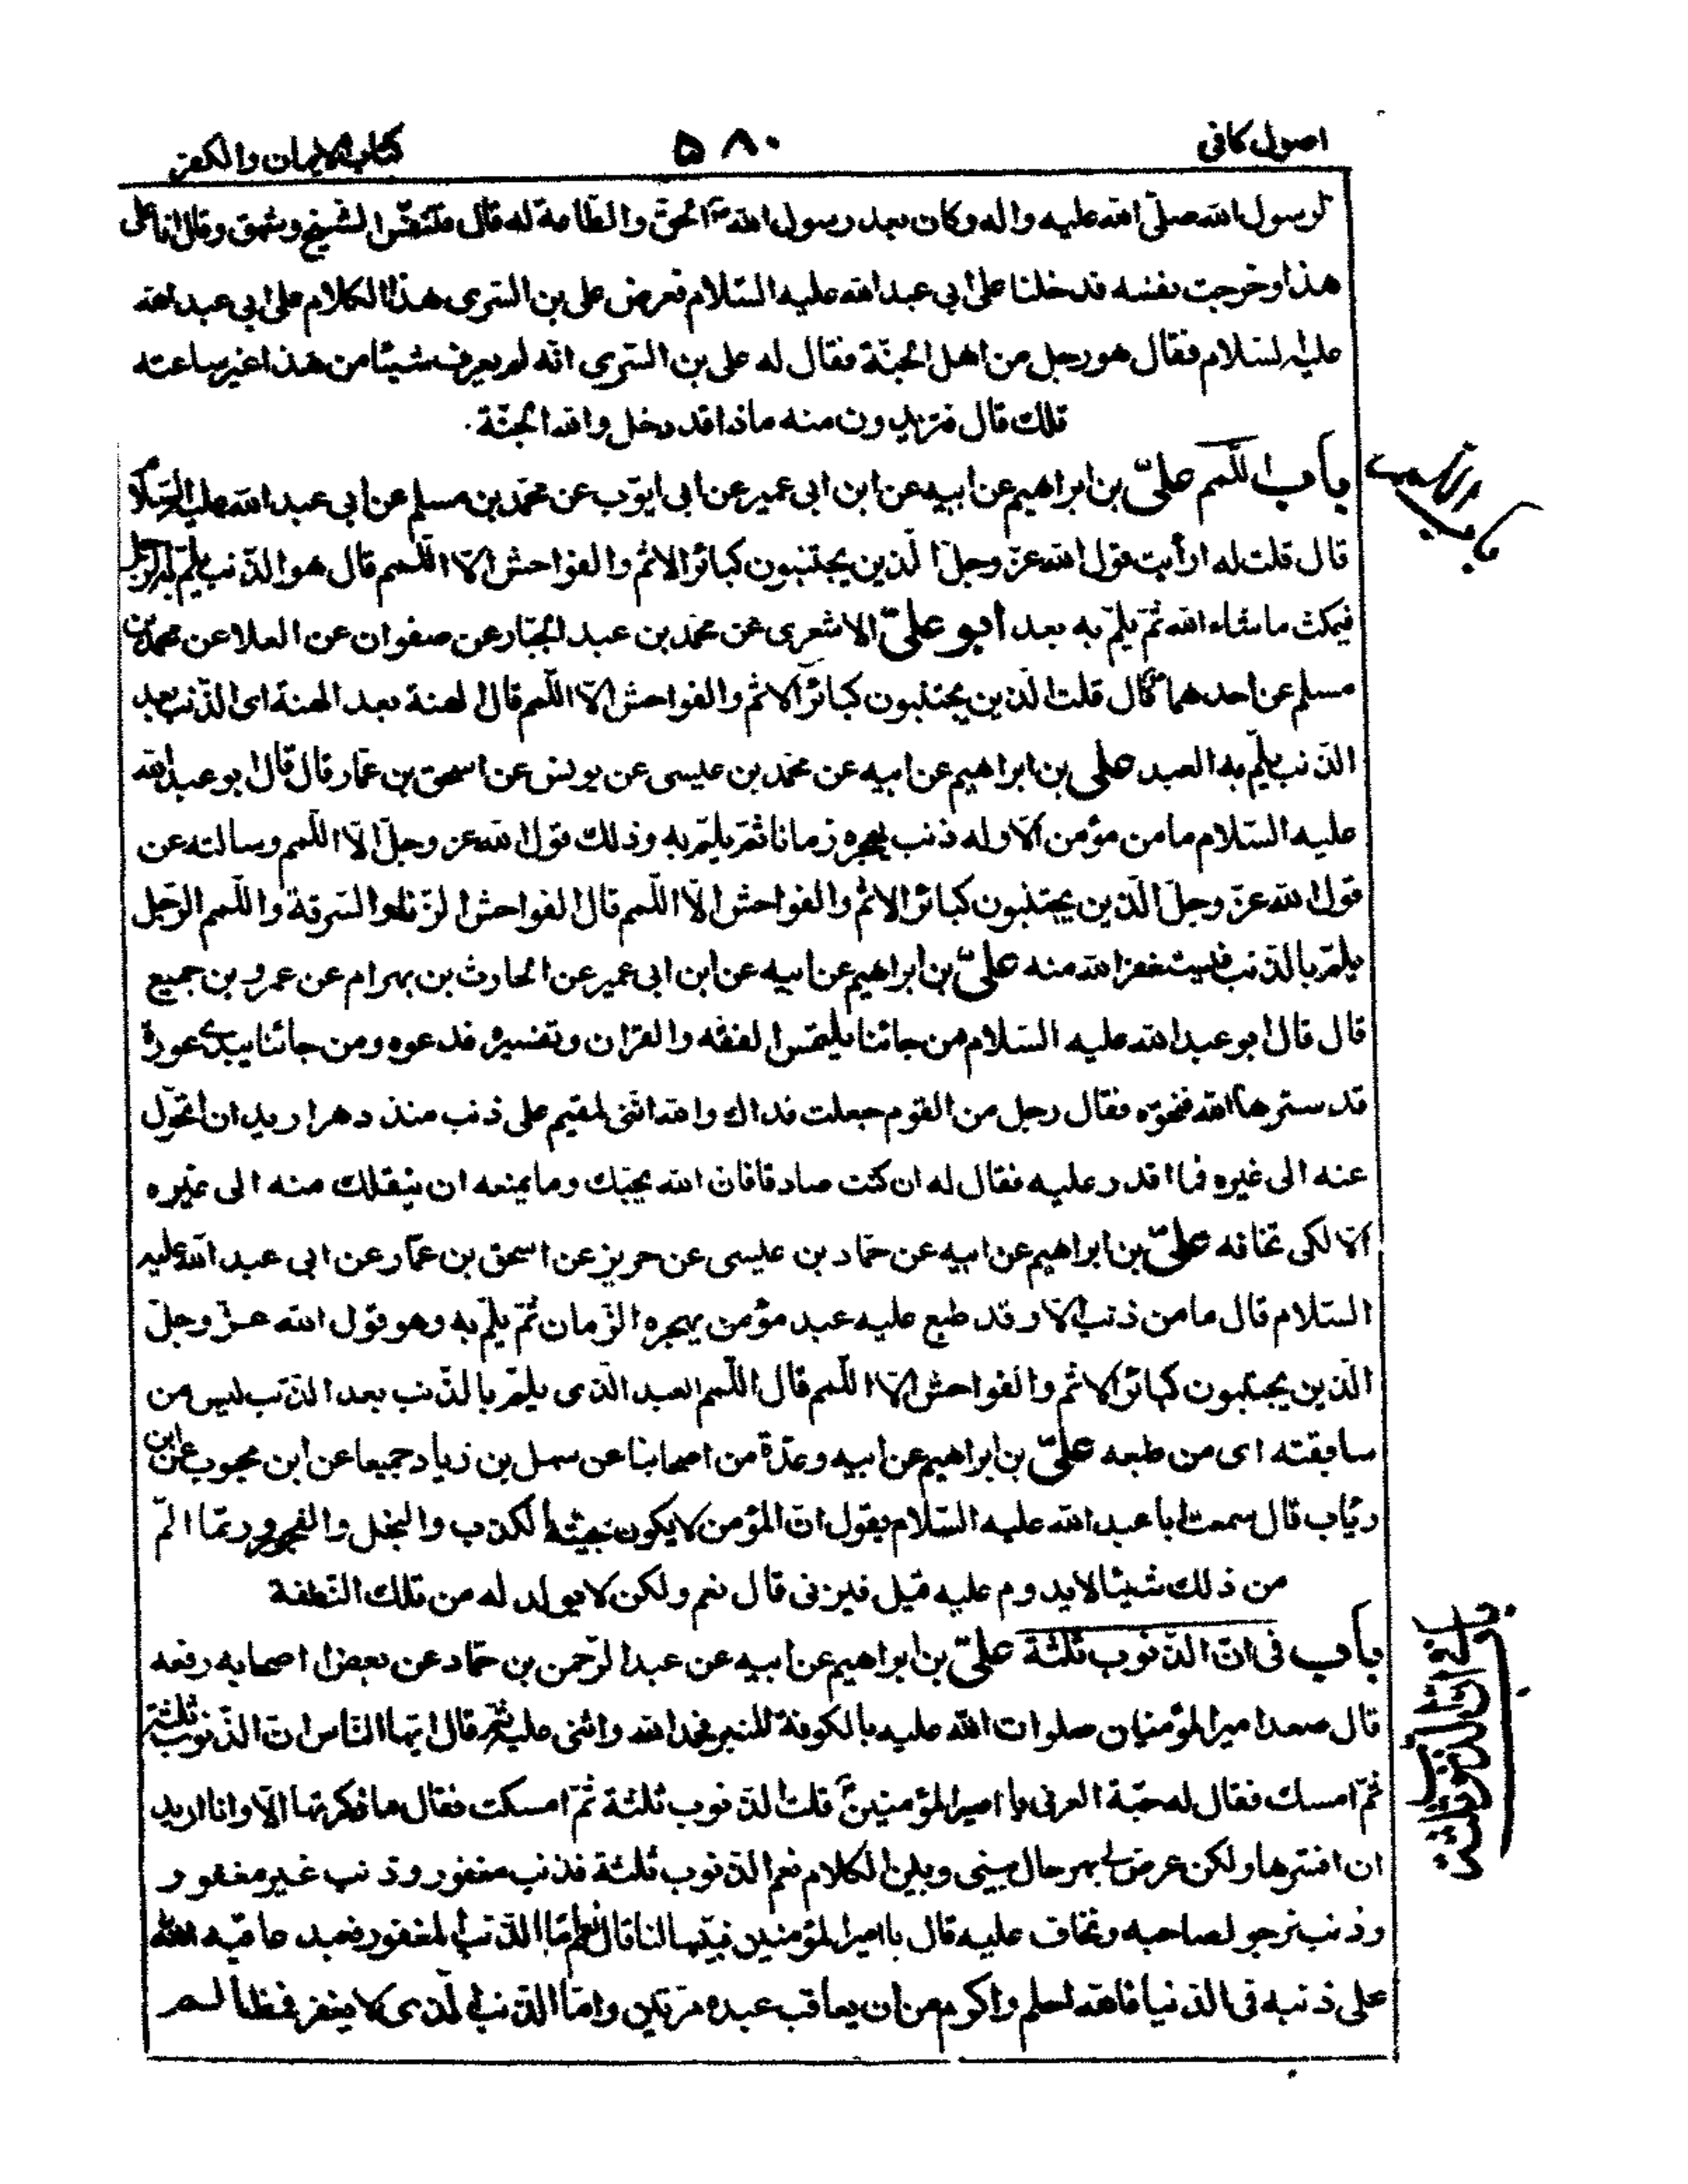 اصول کافی
۵۸۰
کتاب الایمان والکفر
لرسول الله صلّی الله علیه واله وکان بعد رسول الله ص الحقّ والطّاعة له قال فتنفّس الشّیخ وشهق وقال انا علی
هذا وخرجت نفسه فدخلنا علی ابی عبدالله علیه السّلام فعرض علی بن السّری هذا الکلام علی ابی عبدالله
علیه السّلام فقال هو رجل من اهل الجنّة فقال له علی بن السّری انّه لم یعرف شیئا من هذا غیر ساعته
تلك قال فتریدون منه ماذا قد دخل والله الجنّة.
باب اللّمم علیّ بن ابراهیم عن ابیه عن ابن ابی عمیر عن ابی ایّوب عن محمّد بن مسلم عن ابی عبدالله علیه السّلام
باب اللمم
قال قلت له ارأیت قول الله عزّ وجلّ الّذین یجتنبون کبائر الاثم والفواحش الّا اللّمم قال هو الذّنب یلمّ به الرّجل
فیمکث ماشاء الله ثمّ یلمّ به بعد أبو علیّ الاشعری عن محمّد بن عبد الجبّار عن صفوان عن العلا عن محمّد بن
مسلم عن احدهما ع قال قلت الّذین یجتنبون کبائر الاثم والفواحش الّا اللّمم قال الهنة بعد الهنة ای الذّنب بعد
الذّنب یلمّ به العبد علی بن ابراهیم عن ابیه عن محمّد بن عیسی عن یونس عن اسحق بن عمّار قال قال ابو عبدالله
علیه السّلام ما من مؤمن الّا وله ذنب یهجره زمانا ثمّ یلمّ به وذلك قول الله عزّ وجلّ الّا اللّمم وسالته عن
قول الله عزّ وجلّ الّذین یجتنبون کبائر الاثم والفواحش الّا اللّمم قال الفواحش الزّنا والسّرقة واللّمم الرّجل
یلمّ بالذّنب فیستغفر الله منه علیّ بن ابراهیم عن ابیه عن ابن ابی عمیر عن الحارث بن بهرام عن عمرو بن جمیع
قال قال ابو عبدالله علیه السّلام من جائنا یلتمس الفقه والقران وتفسیره فدعوه ومن جائنا یبدی عورة
قد سترها الله فنحّوه فقال رجل من القوم جعلت فداك والله انّنی لمقیم علی ذنب منذ دهر ارید ان اتحوّل
عنه الی غیره فما اقدر علیه فقال له ان کنت صادقا فانّ الله یحبّك وما یمنعه ان ینقلك منه الی غیره
الّا لکی تخافه علیّ بن ابراهیم عن ابیه عن حمّاد بن عیسی عن حریز عن اسحق بن عمّار عن ابی عبدالله علیه
السّلام قال ما من ذنب الّا وقد طبع علیه عبد مؤمن یهجره الزّمان ثمّ یلمّ به وهو قول الله عزّ وجلّ
الّذین یجتنبون کبائر الاثم والفواحش الّا اللّمم قال اللّمم العبد الّذی یلمّ بالذّنب بعد الذّنب لیس من
سلیقته ای من طبعه علیّ بن ابراهیم عن ابیه وعدّة من اصحابنا عن سهل بن زیاد جمیعا عن ابن محبوب عن ابن
رئاب قال سمعت ابا عبدالله علیه السّلام یقول انّ المؤمن لا یکون سجیّته الکذب والبخل والفجور وربّما المّ
من ذلك شیئا لا یدوم علیه قیل فیزنی قال نعم ولکن لا یولد له من تلك النّطفة
باب فی انّ الذّنوب ثلثة علیّ بن ابراهیم عن ابیه عن عبد الرّحمن بن حمّاد عن بعض اصحابه رفعه
باب فی ان الذنوب ثلثة
قال صعد امیر المؤمنین صلوات الله علیه بالکوفة المنبر فحمد الله واثنی علیه ثمّ قال ایّها النّاس انّ الذّنوب ثلثة
ثمّ امسك فقال له حبّة العرنی یا امیر المؤمنین قلت الذّنوب ثلثة ثمّ امسکت فقال ما ذکرتها الّا وانا ارید
ان افسّرها ولکن عرض لی بهر حال بینی وبین الکلام نعم الذّنوب ثلثة فذنب مغفور وذنب غیر مغفور
وذنب نرجو لصاحبه ونخاف علیه قال یا امیر المؤمنین فبیّنها لنا قال نعم امّا الذّنب المغفور فعبد عاقبه الله
علی ذنبه فی الدّنیا فالله احلم واکرم من ان یعاقب عبده مرّتین وامّا الذّنب الّذی لا یغفر فمظالم